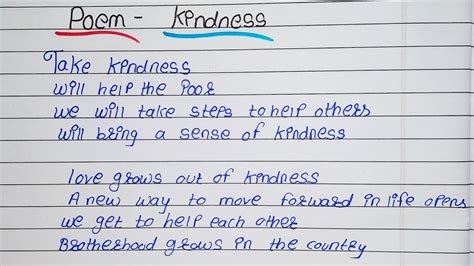 Poem - Kindness
Take kindness
will help the Poor
we will take steps to help others
will bring a sense of kindness
love grows out of kindness
A new way to move forward in life opens
we get to help each other
Brotherhood grows in the country